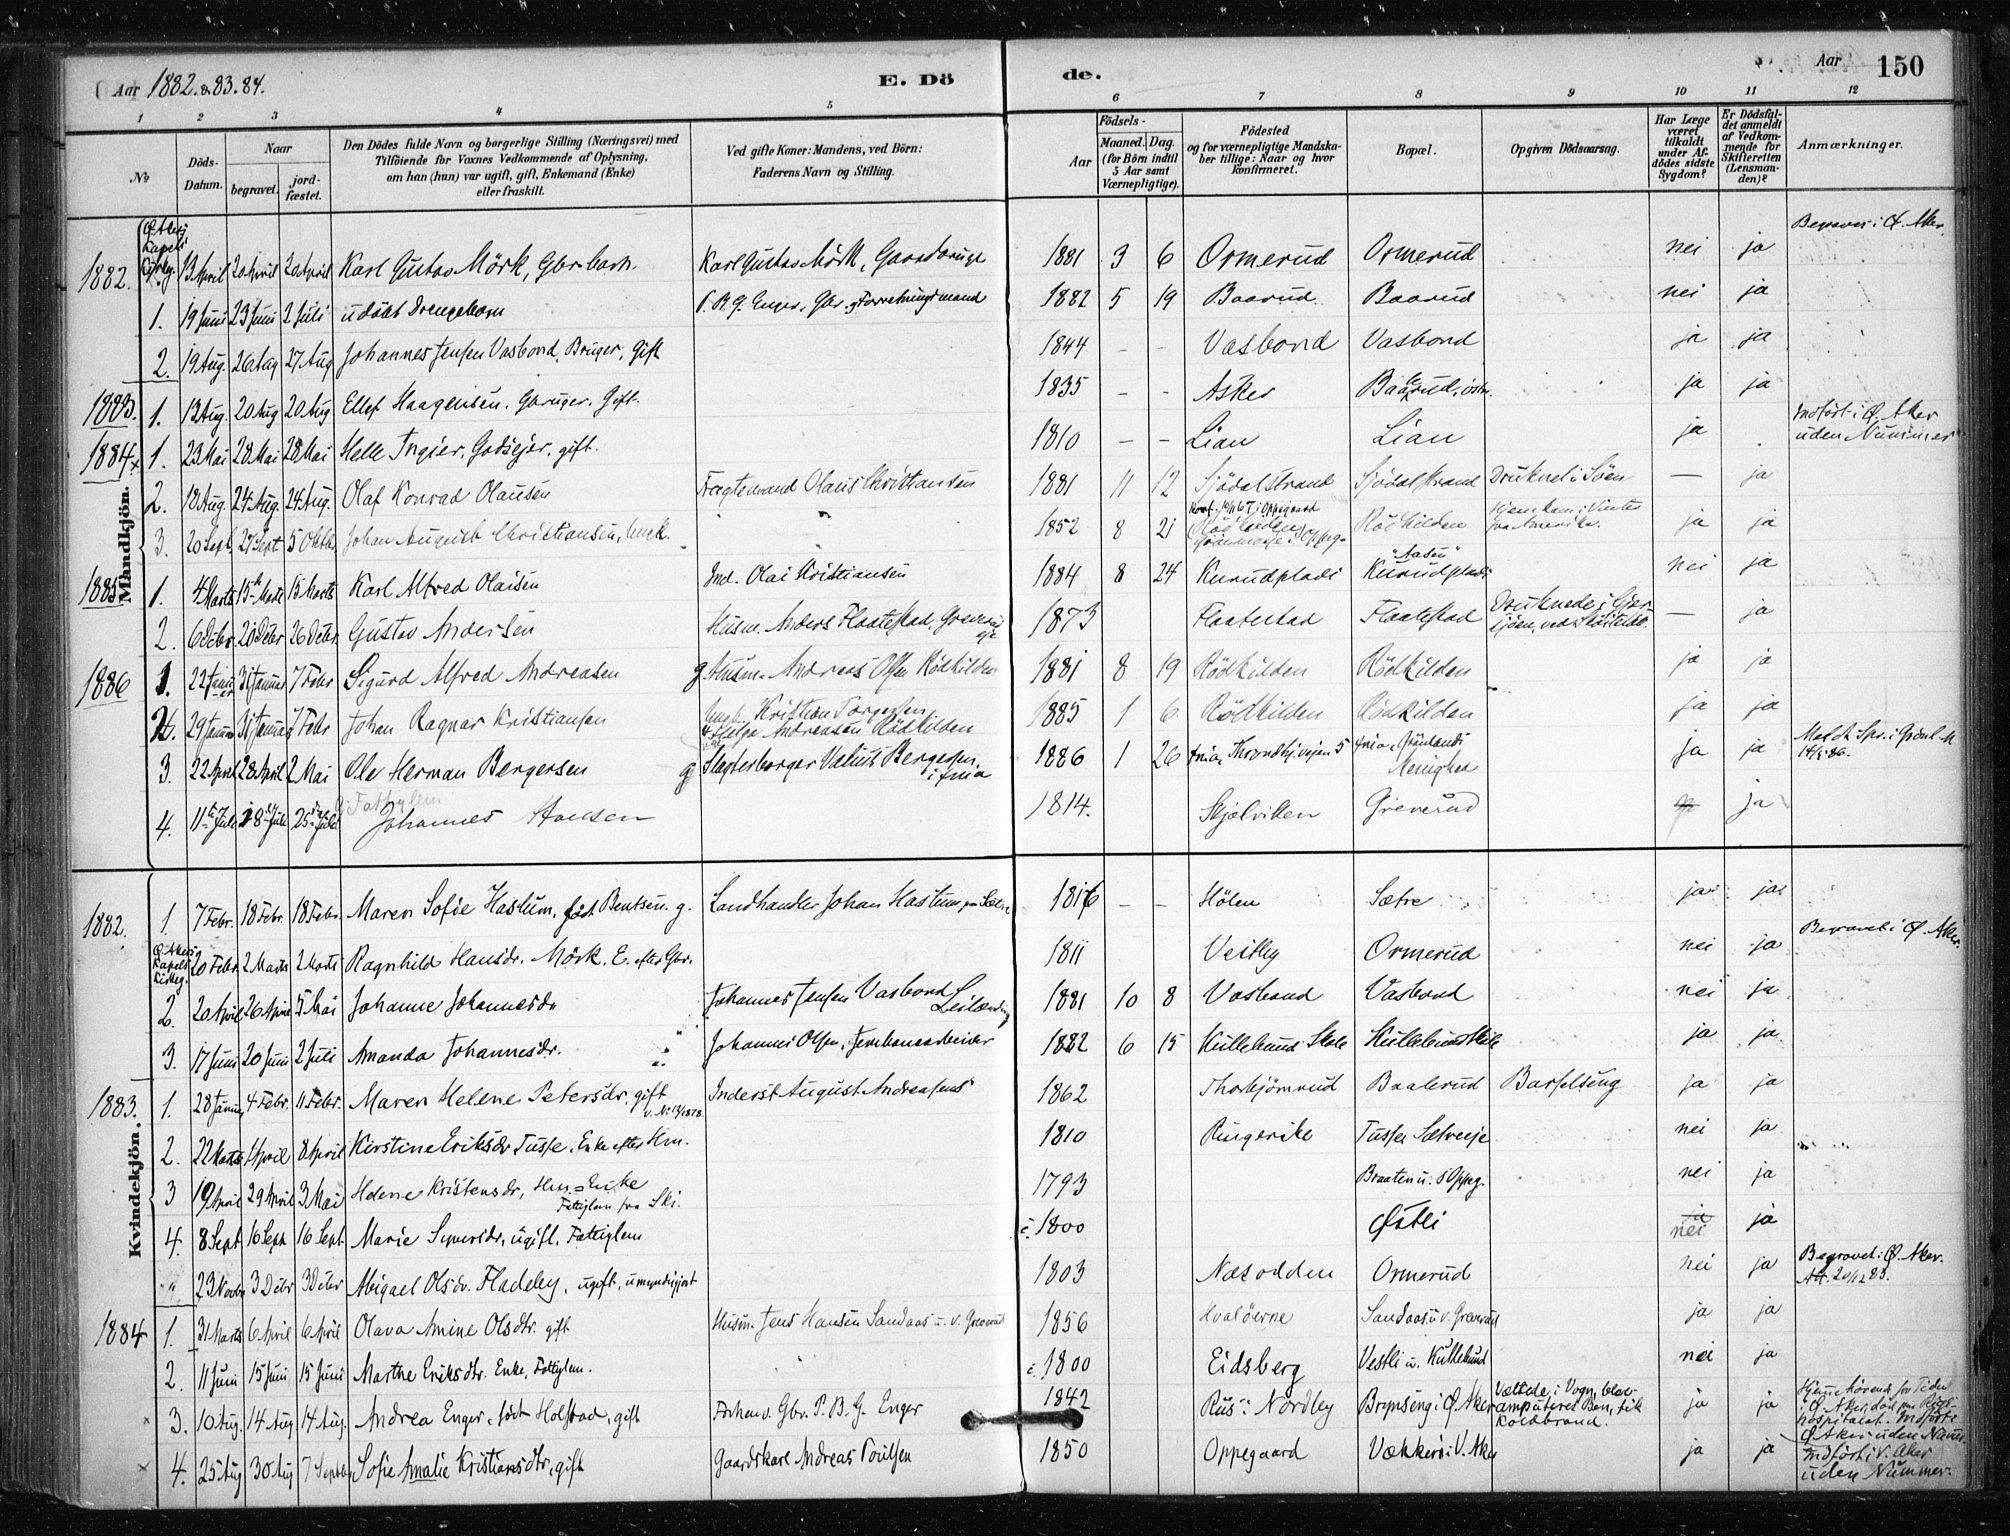 Aar 1882. & 83. 84.
E. Dö
de.
Aar
150
1 2 3 4 5 6 7 8 9 10 11 12
No
Döds-Datum.
Naar
begravet.
jord-fæstet.
Den Dödes fulde Navn og borgerlige Stilling (Næringsvei) med
Tilföiende for Voxnes Vedkommende af Oplysning,
om han (hun) var ugift, gift, Enkemand (Enke)
eller fraskilt.
Ved gifte Koner: Mandens, ved Börn:
Faderens Navn og Stilling.
Födsels-
Aar
Maaned. Dag.
(for Börn indtil
5 Aar samt
Værnepligtige).
Födested
og for værnepligtige Mandska-
ber tillige: Naar og hvor
konfirmeret.
Bopæl.
Opgiven Dödsaarsag.
Har Læge
været
tilkaldt
under Af-
dödes sidste
Sygdom?
Er Dödsfal-
det anmeldt
af Vedkom-
mende for
Skifteretten
(Lensman-
den)?
Anmærkninger.
Mandkjön.
1882. Ø. Akers Kapels Kirkeg. 13 April 20 April 20 April Karl Gustav Mörk, Gbr barn. Karl Gustav Mörk, Gaardbruger 1881 3 6 Ormerud Ormerud nei ja Begravet i Ø. Aker.
1. 19 Juni 23 Juni 2 Juli udöbt Drengebarn P. B. G. Enger, Gbr. og Forretningsmand 1882 5 19 Baarud Baarud nei ja
2. 19 Aug. 26 Aug 27 Aug Johannes Jensen Vasbond, Bruger, Gift 1844 – – Vasbond Vasbond ja ja
1883. 1. 13 Aug. 20 Aug 20 Aug Ellef Haagensen. Gbruger. Gift. 1835 – – Asker Baarud, östre. ja ja
1884. 1. 23 Mai 28 Mai 28 Mai Helle Ingier, Godseier. gift. 1810 – – Lian Lian ja Indfört i Ø. Aker uden Nummer
2. 18 Aug. 24 Aug. 24 Aug. Olaf Konrad Olausen Fragtemand Olaus Christiansen 1881 11 12 Sjödalstrand Sjödalstrand Druknet i Söen — ja
3. 20 Sept. 27 Sept 5 Oktbr. Johan August Christiansen, Ungk. " 1852 8 21 Rödkilden Rödkilden Hjemkom i Vinter fra Amerika. ja ja
1885 1. 4 Marts 15 Marts 15 Marts Karl Alfred Olaisen Ind. Olai Kristiansen 1884 8 24 Kurudplads "Aasen" Kurudplads nei ja
2. 6 Debr. 20 Debr 26 Debr Gustav Andersen Husm. Anders Flaatestad, Greverud eje 1873 Flaatestad Flaatestad Druknede i Gjersjöen, ved — ja
1886 1. 22 Januar 31 Januar 7 Febr Sigurd Alfred Andreasen g Husm. Andreas Olsen Rödkilden 1881 8 19 Rödkilden Rödkilden ja ja
2. 29 Januar 31 Januar 7 Febr Johan Ragnar Kristiansen Ungk. Kristian Torgersen & Helga Andreasen Rödkilden 1885 1 6 Rödkilden Rödkilden ja ja
3. 22 April 28 April 2 Mai Ole Herman Bergersen g Slagterborger Valius Bergersen i Xnia 1886 1 26 Xnia, Throndhj.vejen 5 Xnia, Grönlands Menighed ja ja Meldt Spr. i Grönl. M 14/5 86.
4. 11te Juli 18 Juli 25 Juli Fattiglem Johannes Hansen 1814. Skjælviken Greverud ja
Kvindekjön.
1882. 1. 7 Febr. 18 Febr. 18 Febr. Maren Sofie Haslum, födt Bentsen. g. Landhandler Johan Haslum paa Sætre 1816 – – Hölen Sætre ja ja
Ø. Akers Kapels Kirkeg. 20 Febr. 2 Marts 2 Marts Ragnhild Hansdr. Mörk. E. efter Gbr. 1811 Vestby Ormerud nei ja Begravet i Ø. Aker.
2. 20 April 26 April 5 Mai Johanne Johannesdr. Johannes Jensen Vasbond Leilænding 1881 10 8 Vasbond Vasbond nei ja
3. 17 Juni 20 Juni 2 Juli Amanda Johannesdr. Johannes Olsen, Jernbanearbeider 1882 6 15 Kullebund Skole Kullebund Skole ja ja
1883. 1. 28 Januar 4 Febr. 11 Febr. Maren Helene Petersdr. gift v. No 12/1878 Inderst August Andreasen 1862 Thorbjörnrud Baalerud Barselseng ja ja
2. 22 Marts 1 April 8 April Kirstine Eriksdr Tusse. Enke efter Hm. 1810 Ringerike Tusse Sætreeje nei ja
3 19 April 29 April 3 Mai Helene Kristensdr, Hm=Enke Fattiglem fra Ski. 1793 Braaten u. Oppeg. nei ja
4. 8 Sept. 16 Sept 16 Sept. Marie Syversdr, ugift, Fattiglem c. 1800 Østli nei ja
" 23 Novbr 3 Debr 3 Debr Abigael Olsdr. Fladeby, ugift, umyndiggjort 1803 Næsodden Ormerud nei ja Begravet i Ø. Aker. Att. 20/12 83.
1884 1. 31 Marts 6 April 6 April Olava Amine Olsdtr. gift Husm. Jens Hansen Sandaas u. v. Greverud 1856 Hvaløerne Sandaas u. v. Greverud ja ja
2. 11 Juni 15 Juni 15 Juni Marthe Eriksdtr. Enke, Fattiglem. c. 1800 Eidsberg Vestli u. Kullebund nei ja
3. 10 Aug. 14 Aug 14 Aug. Andrea Enger, födt Holstad, gift Forhenv. Gbr. P. B. G. Enger 1842 Riis: Nordby Brynseng i Ø. Aker Væltede i Vogn, blev amputeret Ben, fik Koldbrand. ja ja Hjemmehörende for Tiden i Ø. Aker, död paa Rigshospitalet. Indförte Ø. Aker uden Numer.
4. 25 Aug 30 Aug 7 Septbr Sofie Amalie Kristiansdtr, gift Gaardskarl Andreas Poulsen 1850 Oppegaard Vækkerö i V. Aker ja ja Indfört i V. Aker uden Nummer.